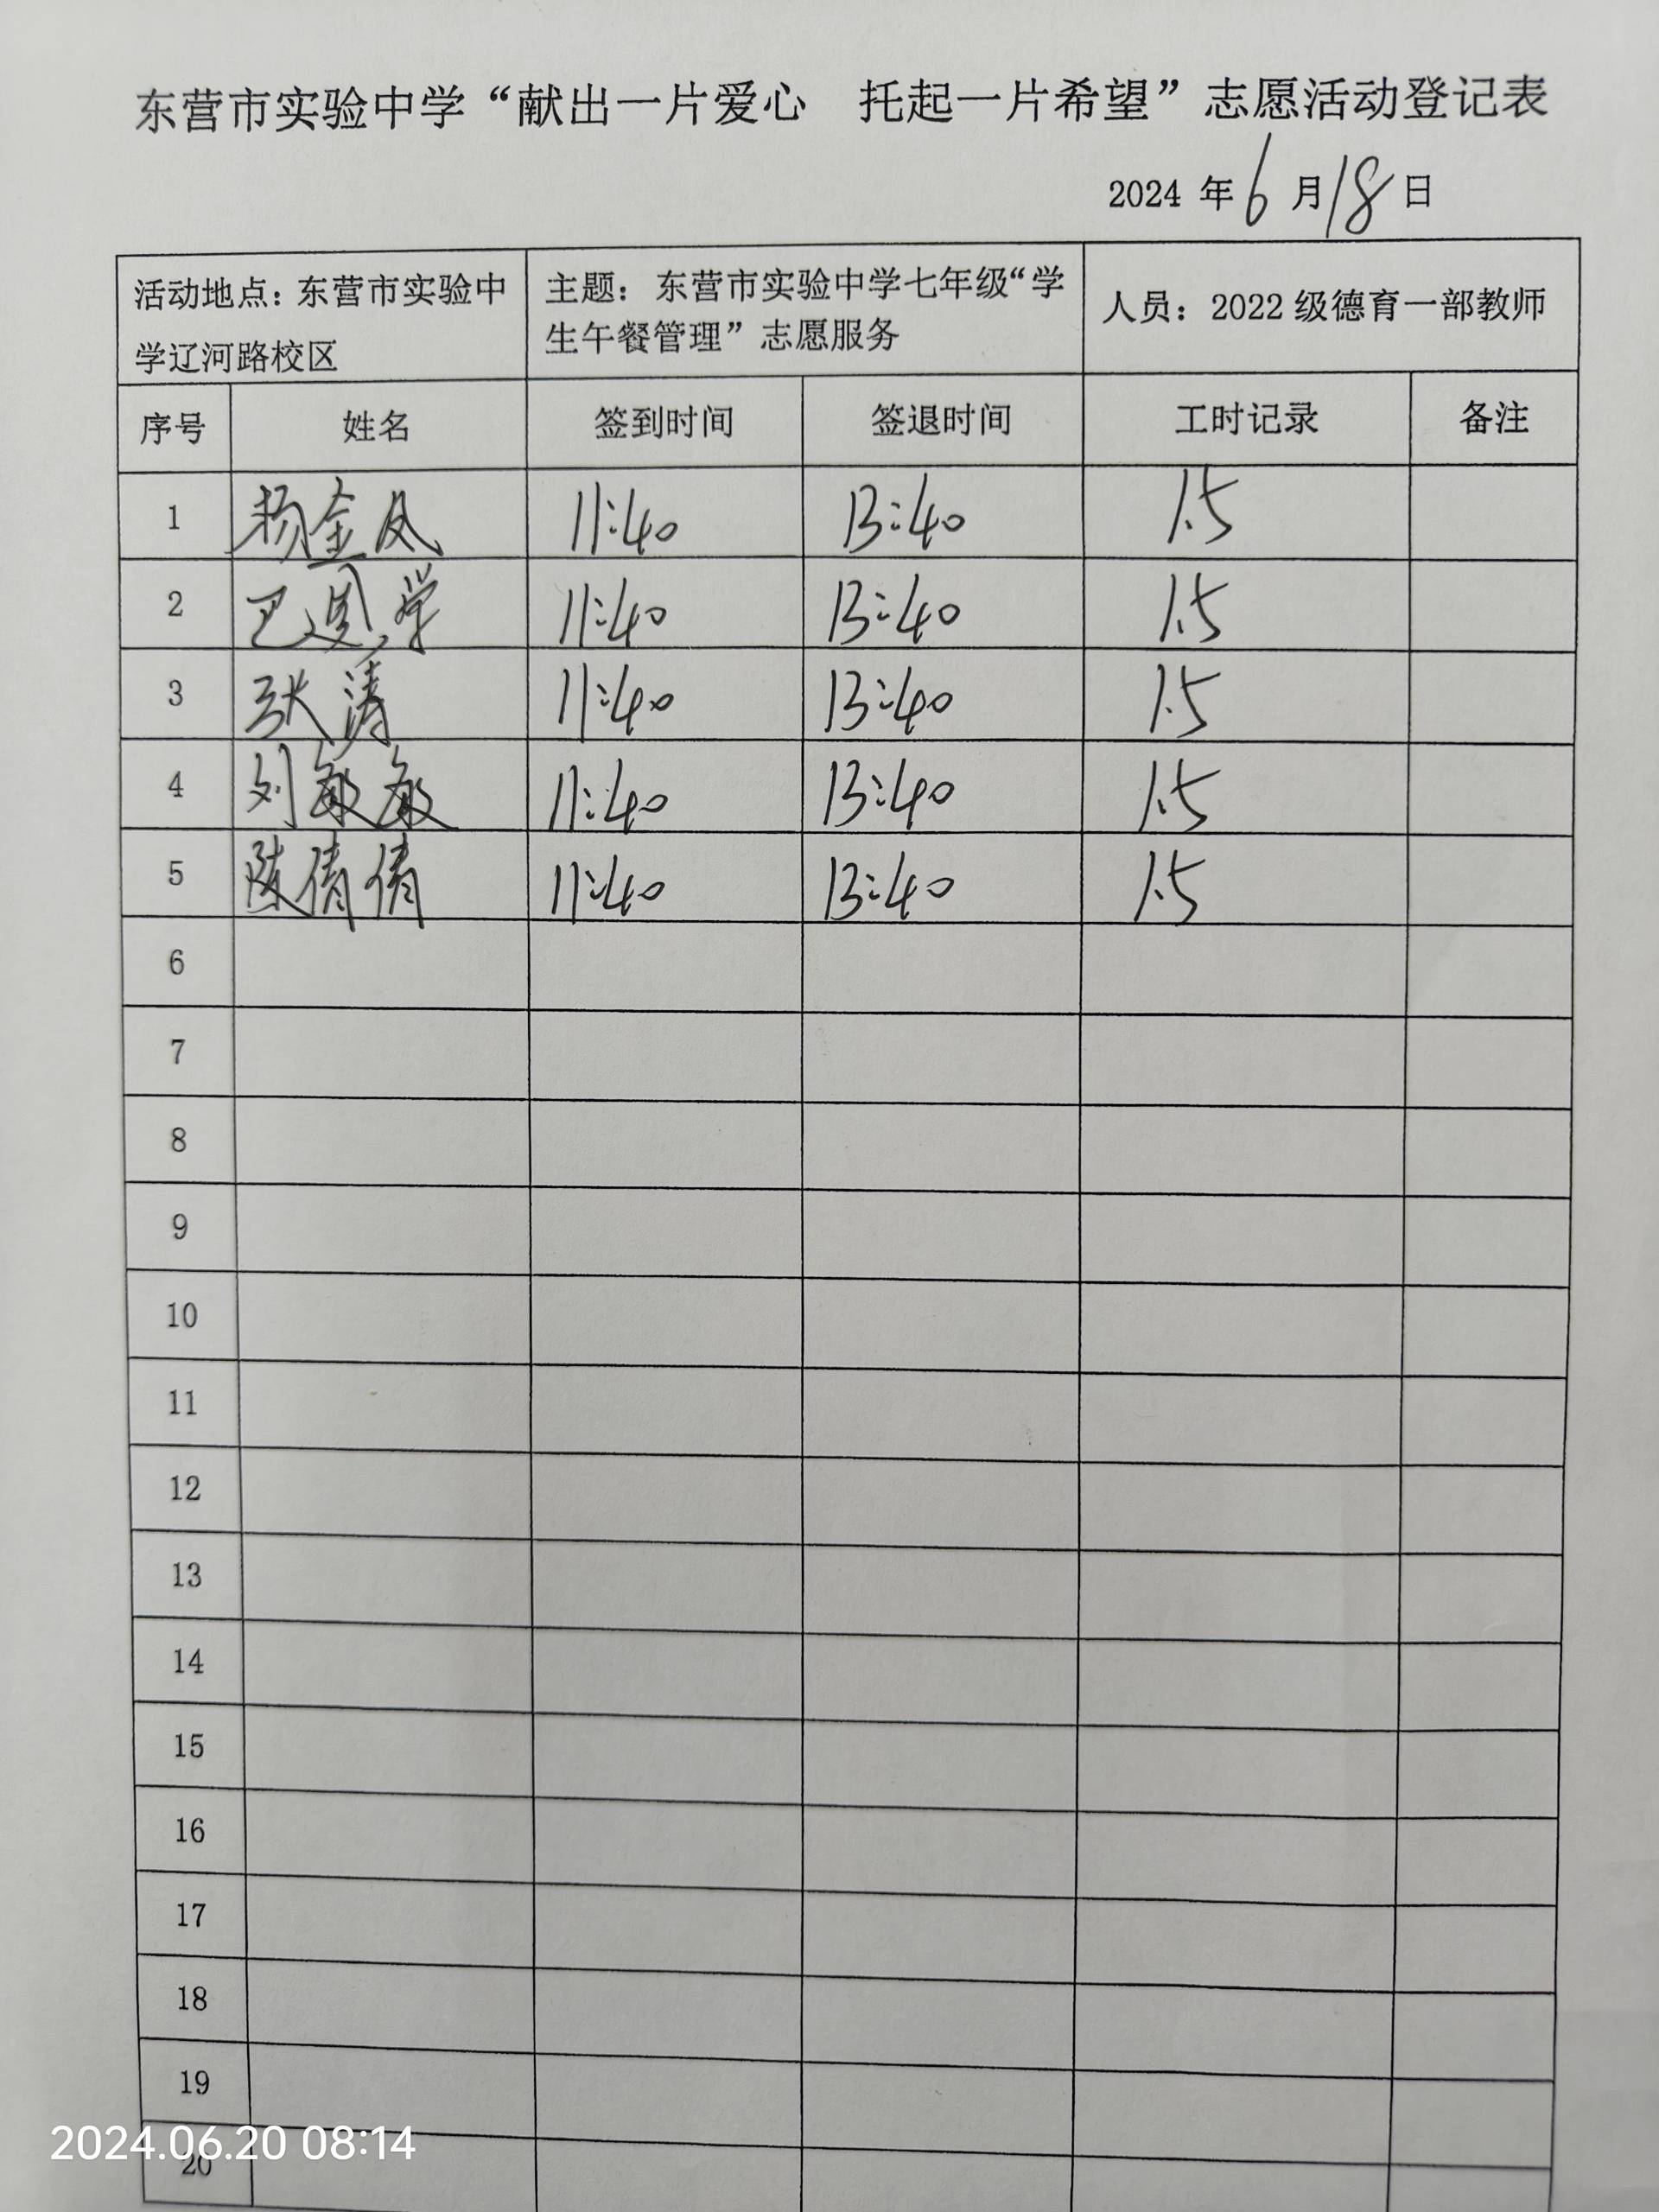 东营市实验中学“献出一片爱心 托起一片希望”志愿活动登记表
2024 年 6 月 18 日
活动地点：东营市实验中
学辽河路校区
主题： 东营市实验中学七年级“学
生午餐管理”志愿服务
人员：2022 级德育一部教师
序号 姓名 签到时间 签退时间 工时记录 备注
1 杨金凤 11:40 13:40 1.5
2 巴 学 11:40 13:40 1.5
3 张涛 11:40 13:40 1.5
4 刘敏敏 11:40 13:40 1.5
5 陈倩倩 11:40 13:40 1.5
6
7
8
9
10
11
12
13
14
15
16
17
18
19
20
2024.06.20 08:14